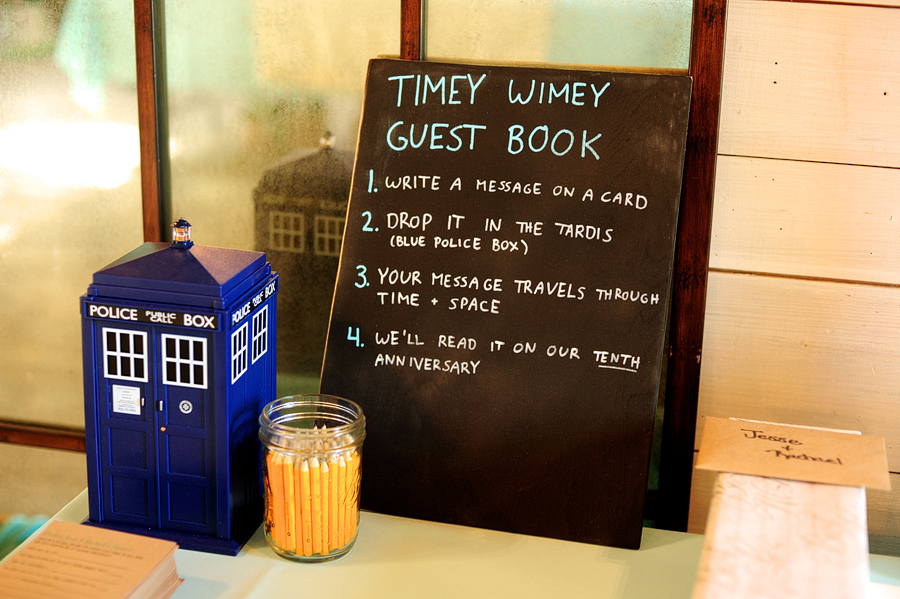 TIMEY WIMEY
GUEST BOOK
1. WRITE A MESSAGE ON A CARD
2. DROP IT IN THE TARDIS
(BLUE POLICE BOX)
3. YOUR MESSAGE TRAVELS THROUGH
TIME + SPACE
4. WE'LL READ IT ON OUR TENTH
ANNIVERSARY
POLICE PUBLIC CALL BOX
POLICE PUBLIC CALL BOX
Jesse
+
Rachael